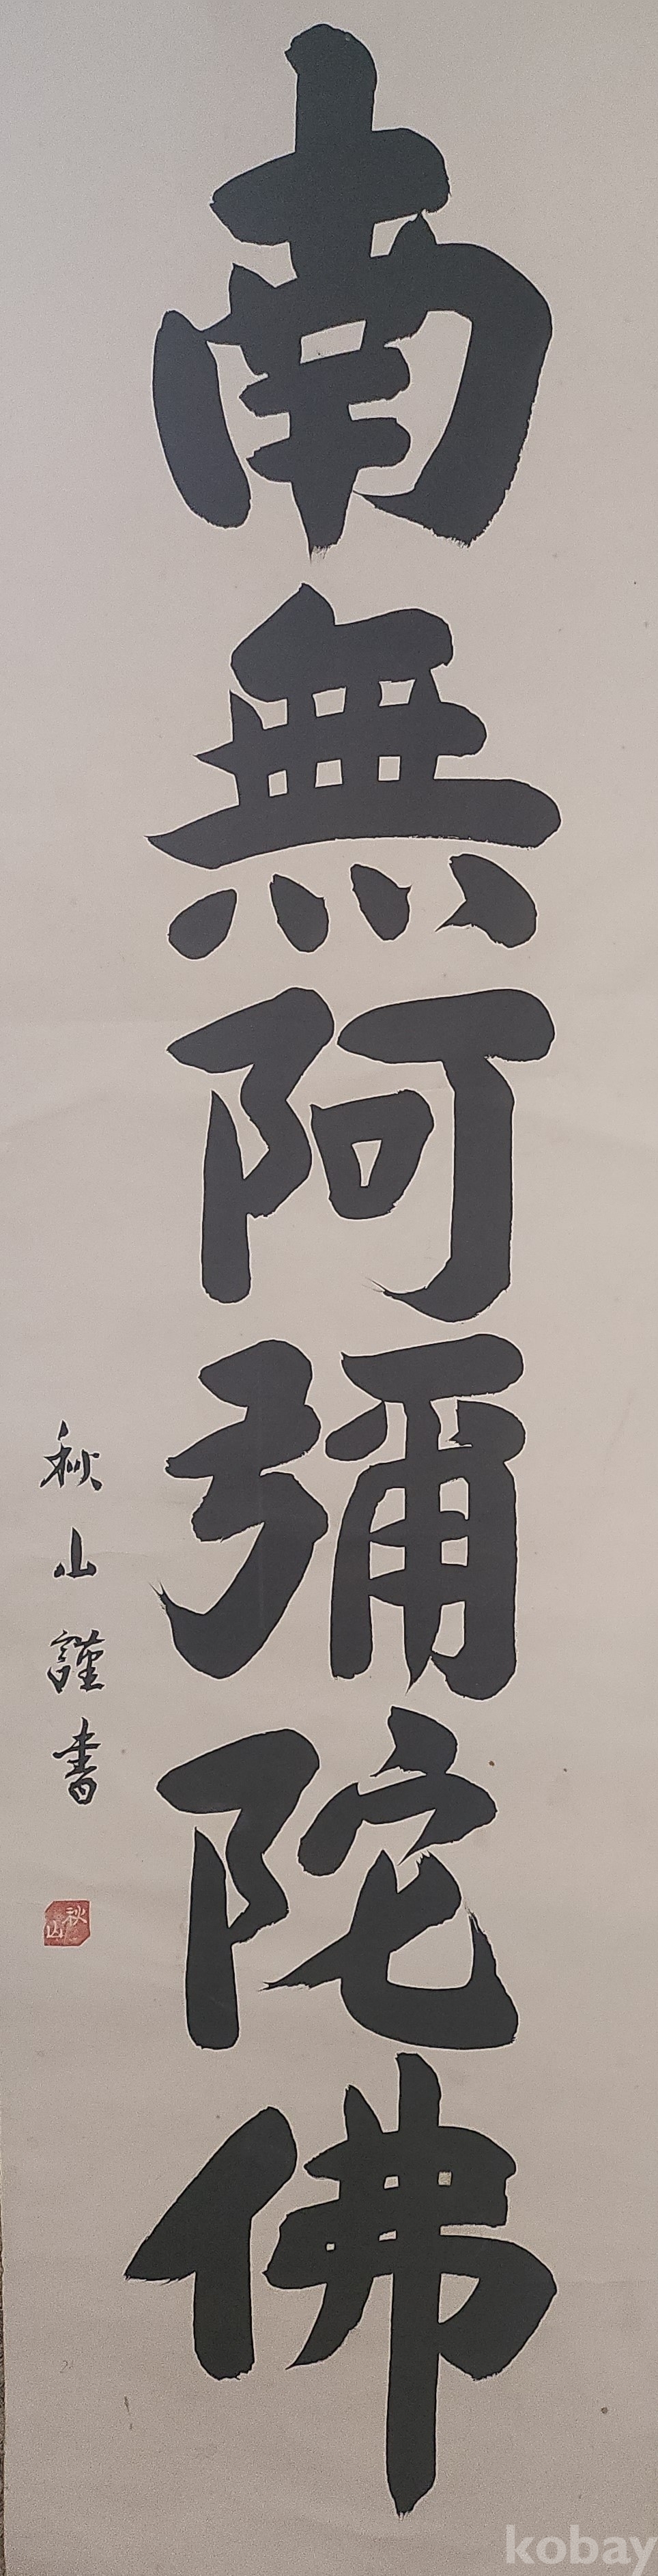 南無阿彌陀佛
秋山謹書
秋山
kobay